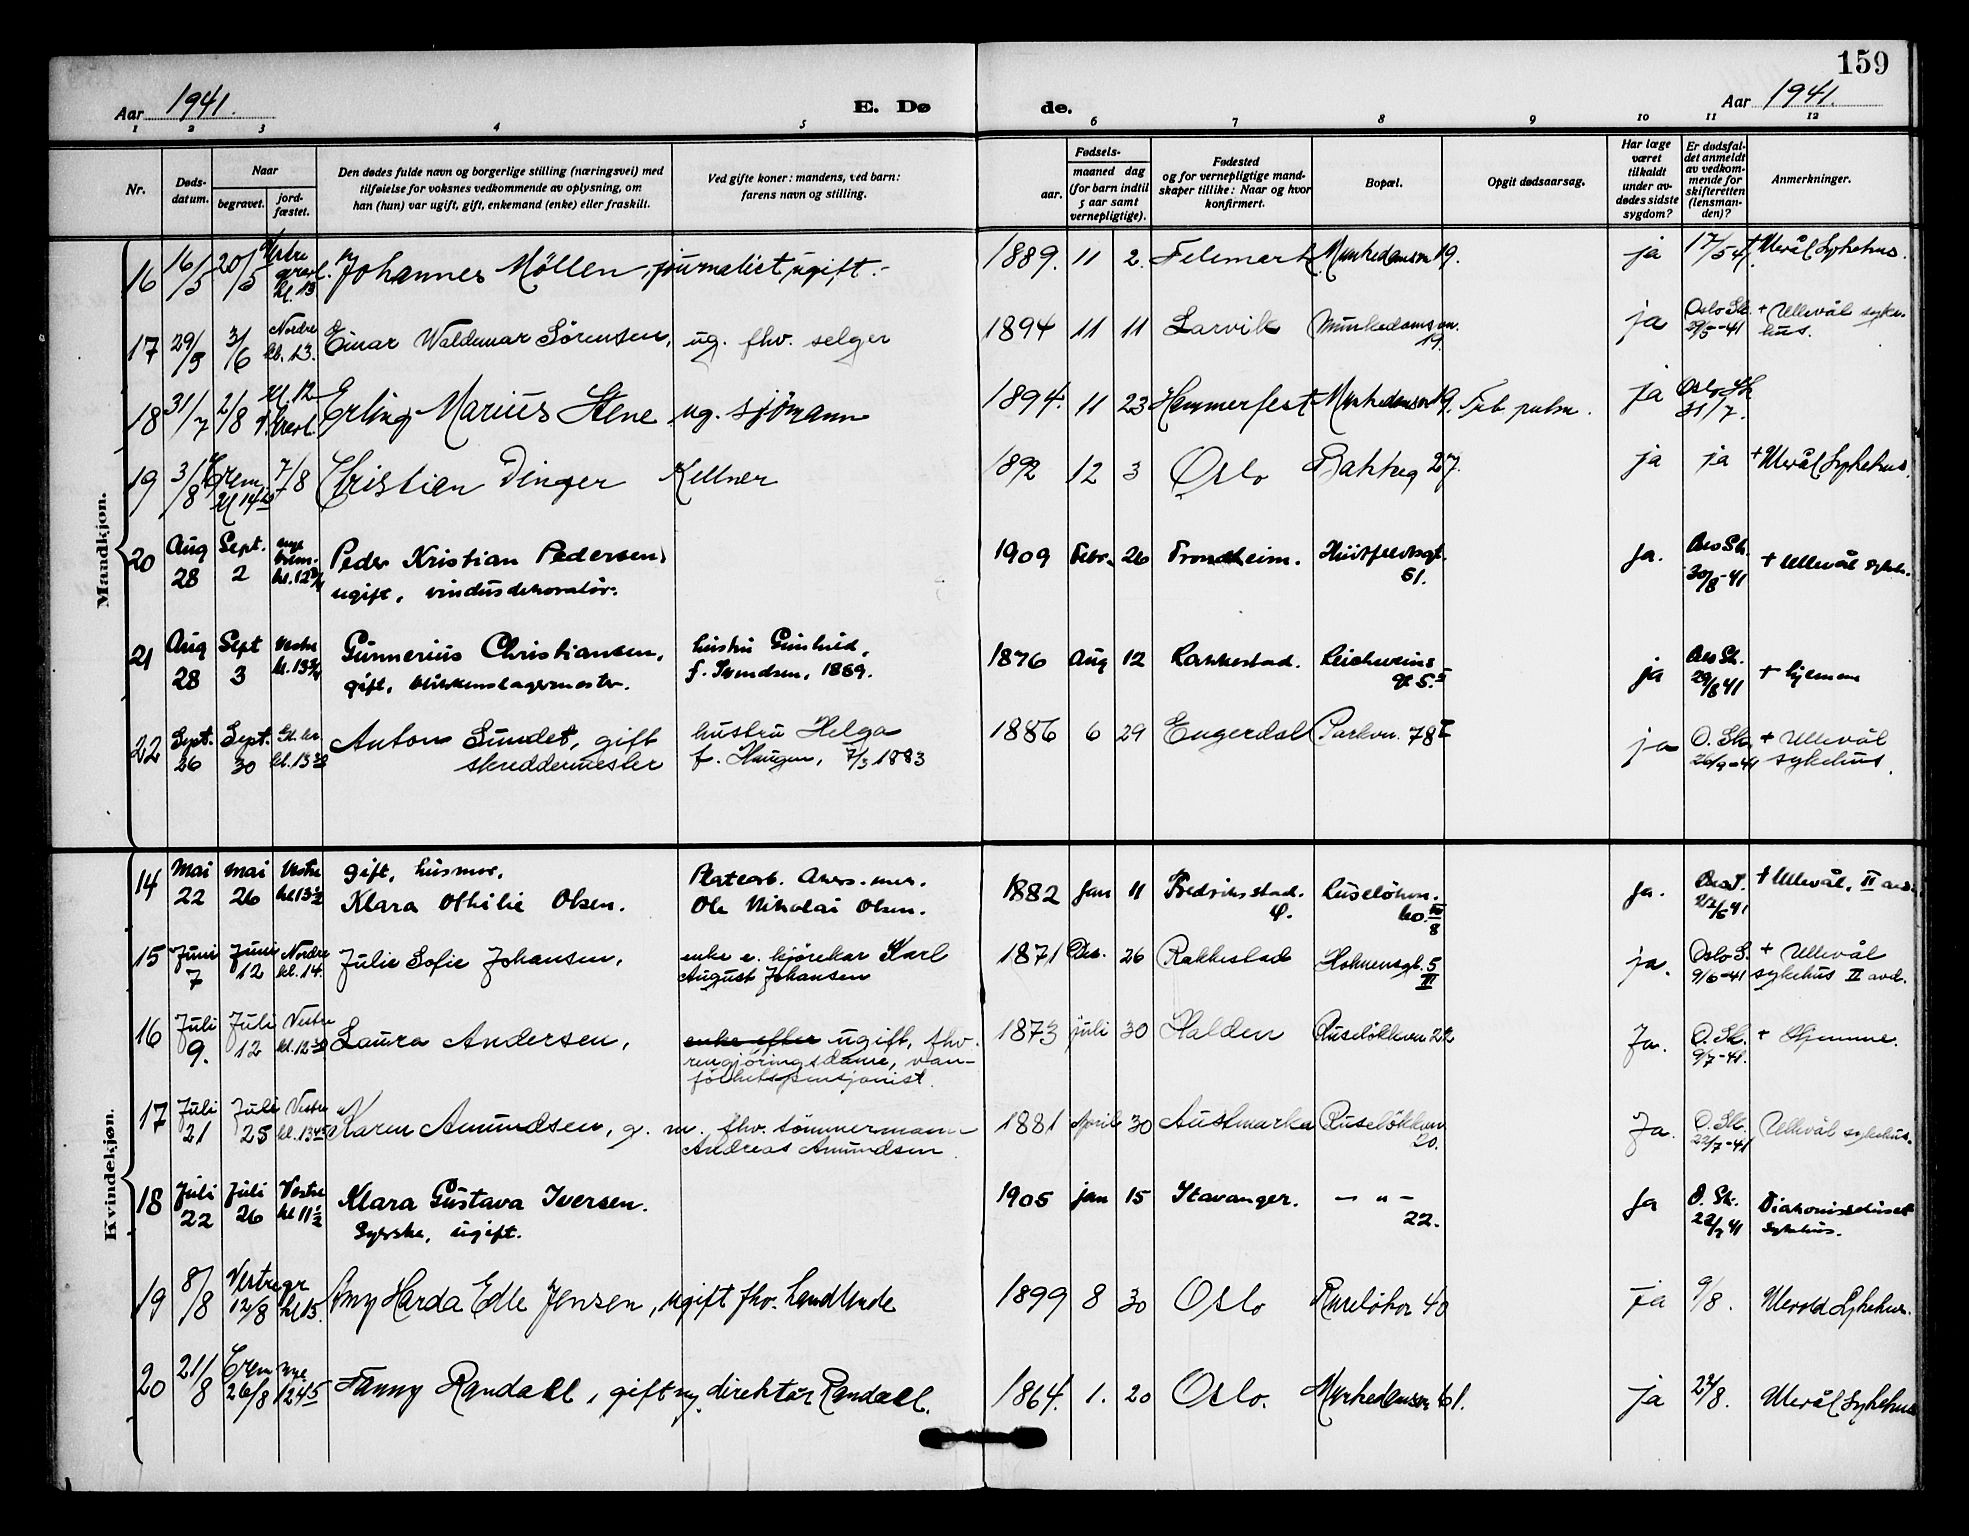 159
Aar 1941. E. Dø de. Aar 1941.
1 2 3 4 5 6 7 8 9 10 11 12
Nr. Døds-datum. Naar begravet. jord-fæstet. Den dødes fulde navn og borgerlige stilling (næringsvei) med tilføielse for voksnes vedkommende av oplysning, om han (hun) var ugift, gift, enkemand (enke) eller fraskilt. Ved gifte koner: mandens, ved barn: farens navn og stilling. Fødsels- aar. maaned dag (for barn indtil 5 aar samt vernepligtige). Fødested og for vernepligtige mand-skaper tillike: Naar og hvor konfirmert. Bopæl. Opgit dødsaarsag. Har læge været tilkaldt under av-dødes sidste sygdom? Er dødsfal-det anmeldt av vedkom-mende for skifteretten (lensman-den)? Anmerkninger.
Mandkjøn.
16 16/5 20/5 Vestre kl. 13 Johannes Möllen, journalist, ugift. 1889. 11 2. Telemark Munkedamsvn 19. ja 17/5 41 + Ullevål Sykehus.
17 29/5 3/6 Nordre kl. 13. Einar Waldemar Sörensen, ug. fhv. selger 1894 11 11 Larvik Munkedamsvn. 19. ja Oslo Sk. 29/5-41 + Ullevål sykehus.
18 31/7 2/8 kl. 12 Erling Marius Stene ug. sjömann 1894. 11 23 Hammerfest Munkedamsvn 19. Tub. pulm. ja Oslo Sk 31/7.
19 3/8 Crem. kl 14 7/8 Christian Dinger Kellner 1892 12 3 Oslo Bakkeg 27. ja ja + Ullevål Sykehus
20 Aug 28 Sept. 2 nye krem. kl. 12 3/4 Peder Kristian Pedersen, ugift, vindusdekoratör. 1909 Febr. 26 Trondheim. Huitfeldtsgt. 51. ja. Oslo Sk. 30/8-41 + Ullevål sykeh.
21 Aug 28 Sept 3 Vestre kl. 13 Gunnerius Christiansen, gift, blikkenslagermester. hustru Gunhild, f. Svendsen, 1869. 1876 Aug 12 Rakkestad. Reichweins gt 5. ja Oslo Sk. 29/8 41 + hjemme
22 Sept. 26 Sept. 30 kl. 13 Anton Sundet, gift skreddermester hustru Helga f. Haugen, 7/3 1883 1886 6 29 Engerdal Parkvn. 78 ja O. Sk. 26/9-41 + Ullevål sykehus.
Kvindekjøn.
14 Mai 22 mai 26 Vestre kl 13 1/2 gift, husmor, Klara Othilie Olsen. Platearb. Akers. mek. Ole Nikolai Olsen. 1882 Jan 11 Fredriksstad. Ruselökvn. 60. ja. + Ullevål, III avd.
15 Juni 7 Juni 12 Nordre kl. 14. Julie Sofie Johansen, enke e. kjörekar Karl August Johansen 1871 Des. 26 Rakkestad Holmensgt. 5 III ja. Oslo S. 9/6-41 + Ullevål sykehus II avd.
16 Juli 9. Juli 12 Vestre kl. 12 Laura Andersen, enke efter ugift, fhv. rengjöringsdame, van-förhetspensjonist. 1873 juli 30 Halden Ruselökkvn 22 Ja. O. Sk. 9/7-41. + Hjemme.
17 Juli 21 Juli 25 Vestre kl. 13 45 Karen Amundsen, g. m. fhv. tömmermann Andreas Amundsen. 1881 April 30 Austmarka Ruselökkvn 20. Ja. O. Sk. 22/7-41 Ullevål sykehus.
18 Juli 22 Juli 26 Vestre kl 11 1/2 Klara Gustava Iversen. Syerske, ugift. 1905 jan 15 Stavanger. — " — 22. Ja O. Sk. 22/7 41 Diakonissehuset sykehus.
19 8/8 Vestre gr 12/8 kl 15. Amy Harda Edle Jensen, ugift fhv. 1899 8 30 Oslo Ruselökvn 40 ja 9/8. Ullevold Sykehus.
20 21/8 Crem nye 26/8 12 45 Fanny Randall, gift m. direktör Randall. 1864. 1. 20 Oslo. Munkedamsvn 61. ja 22/8. Ullevål Sykehus